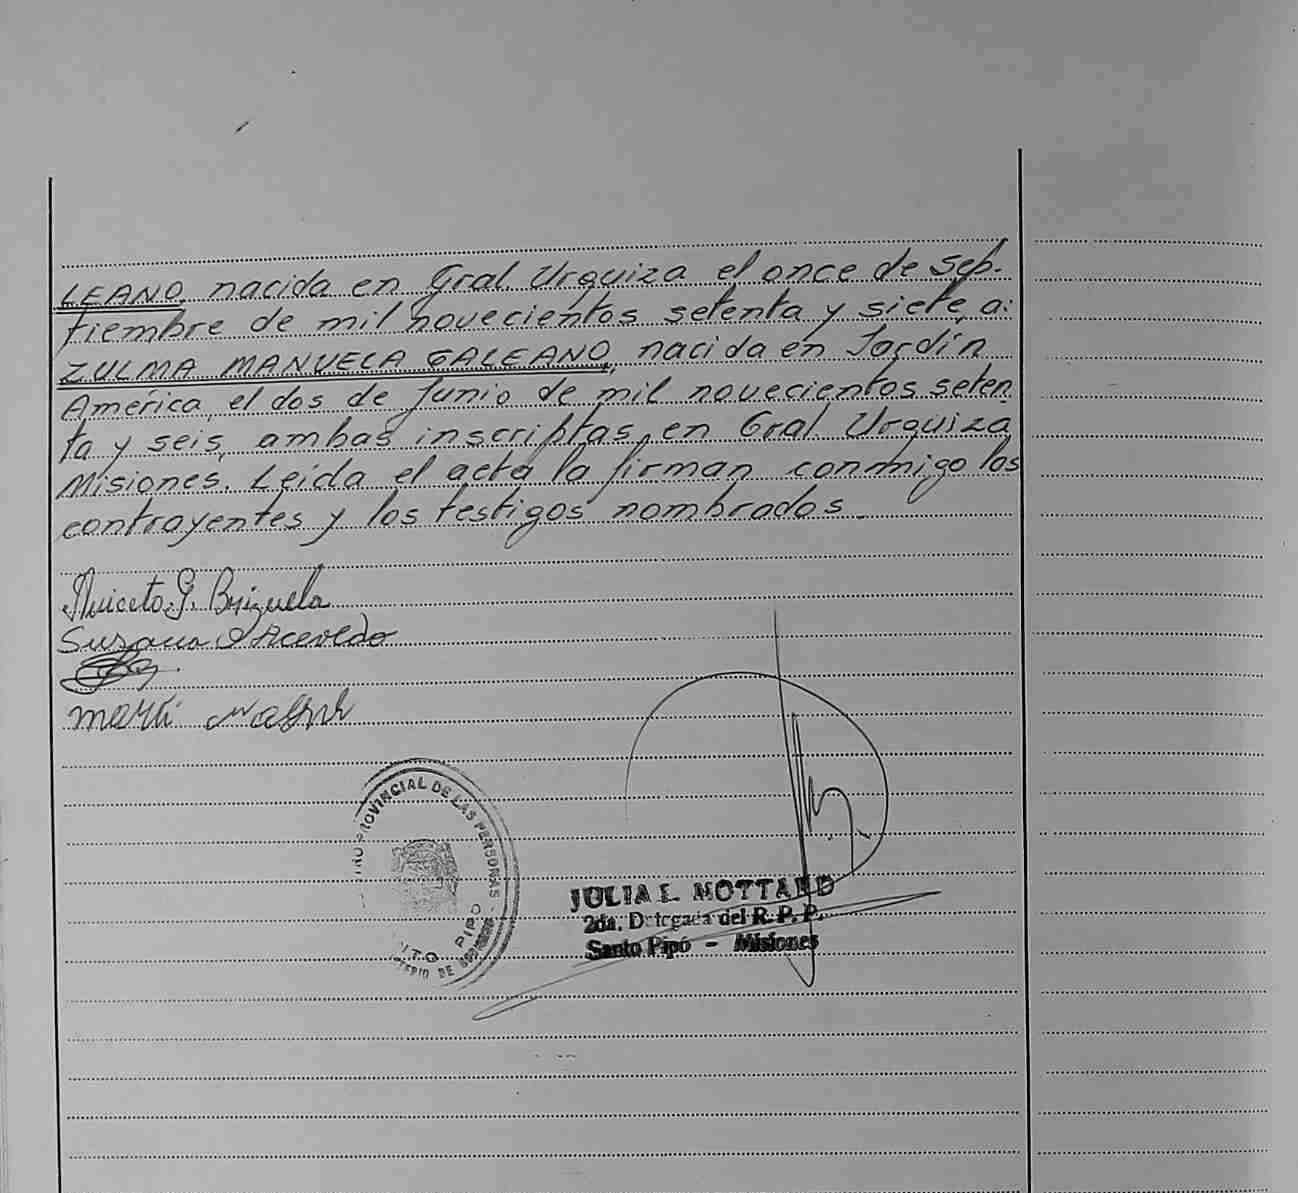 LEANO, nacida en Gral. Urquiza el once de Sep-
tiembre de mil novecientos setenta y siete, a:
ZULMA MANUELA GALEANO, nacida en Jardín
América, el dos de Junio de mil novecientos seten
ta y seis, ambas inscriptas en Gral. Urquiza
Misiones. Leida el acta la firman conmigo los
contrayentes y los testigos nombrados.
Aniceto G. Brizuela
Susana Acevedo
PROVINCIAL DE LAS PERSONAS
PIPO
JULIA L. MOTTARD
2da. Delegada del R. P. P.
Santo Pipó - Misiones